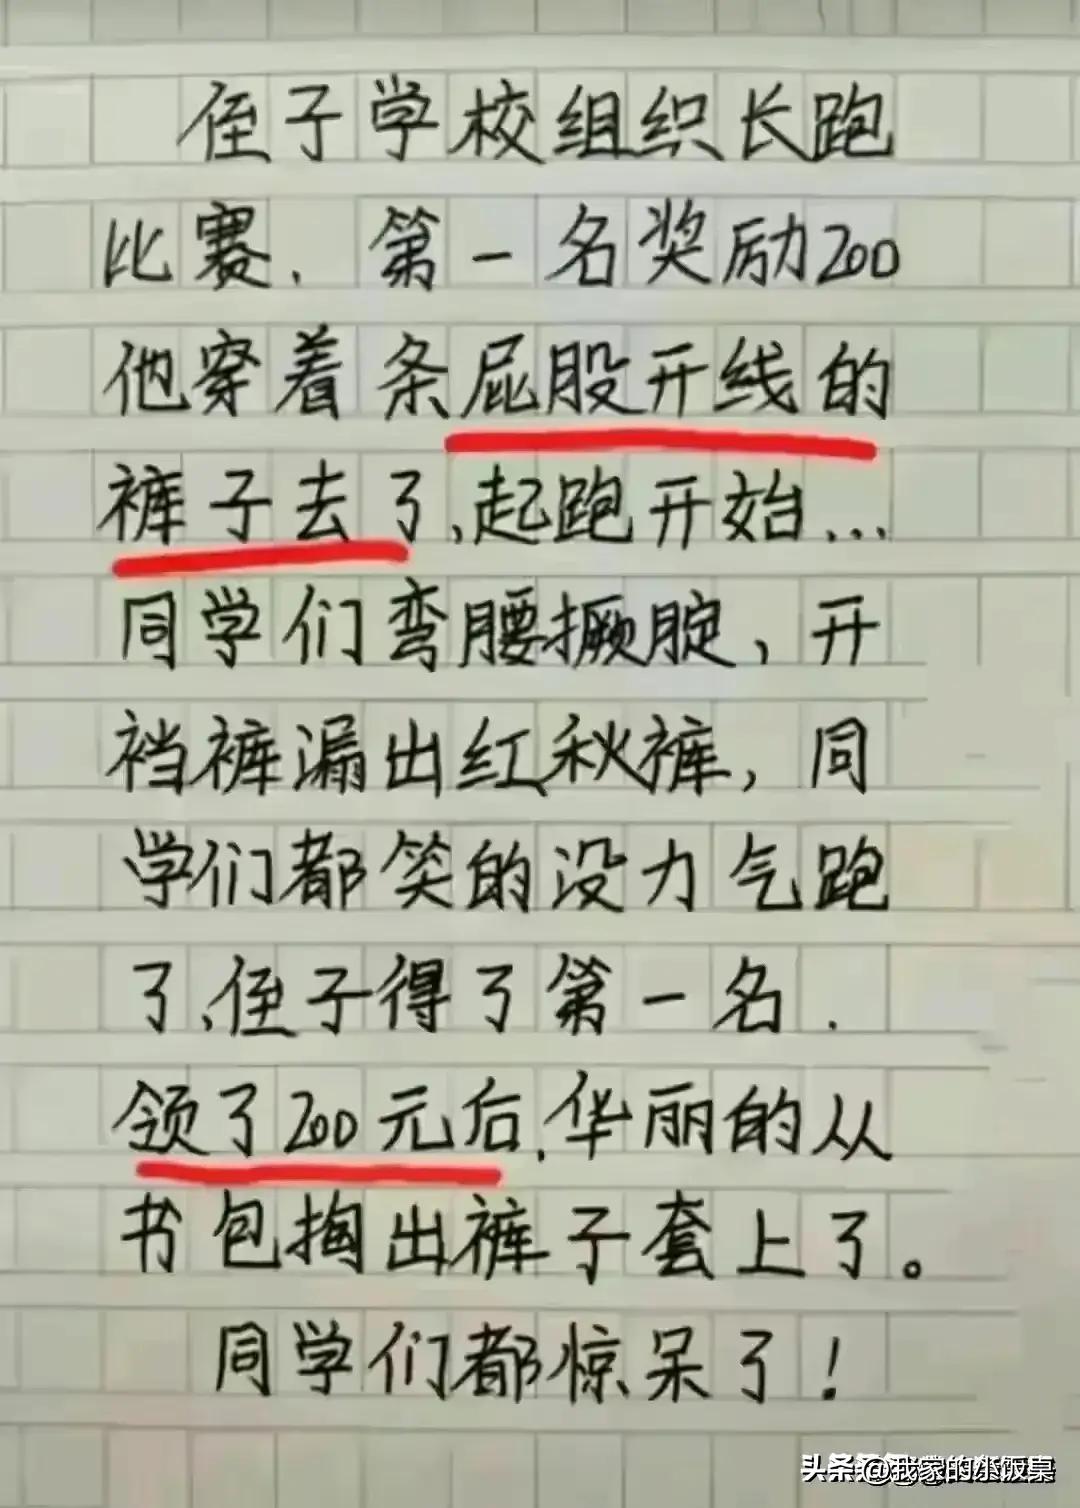 侄子学校组织长跑
比赛.第一名奖励200
他穿着条屁股开线的
裤子去了,起跑开始...
同学们弯腰撅腚,开
裆裤漏出红秋裤,同
学们都笑的没力气跑
了,侄子得了第一名.
领了200元后,华丽的从
书包掏出裤子套上了。
同学们都惊呆了!
头条 @我家的小饭桌